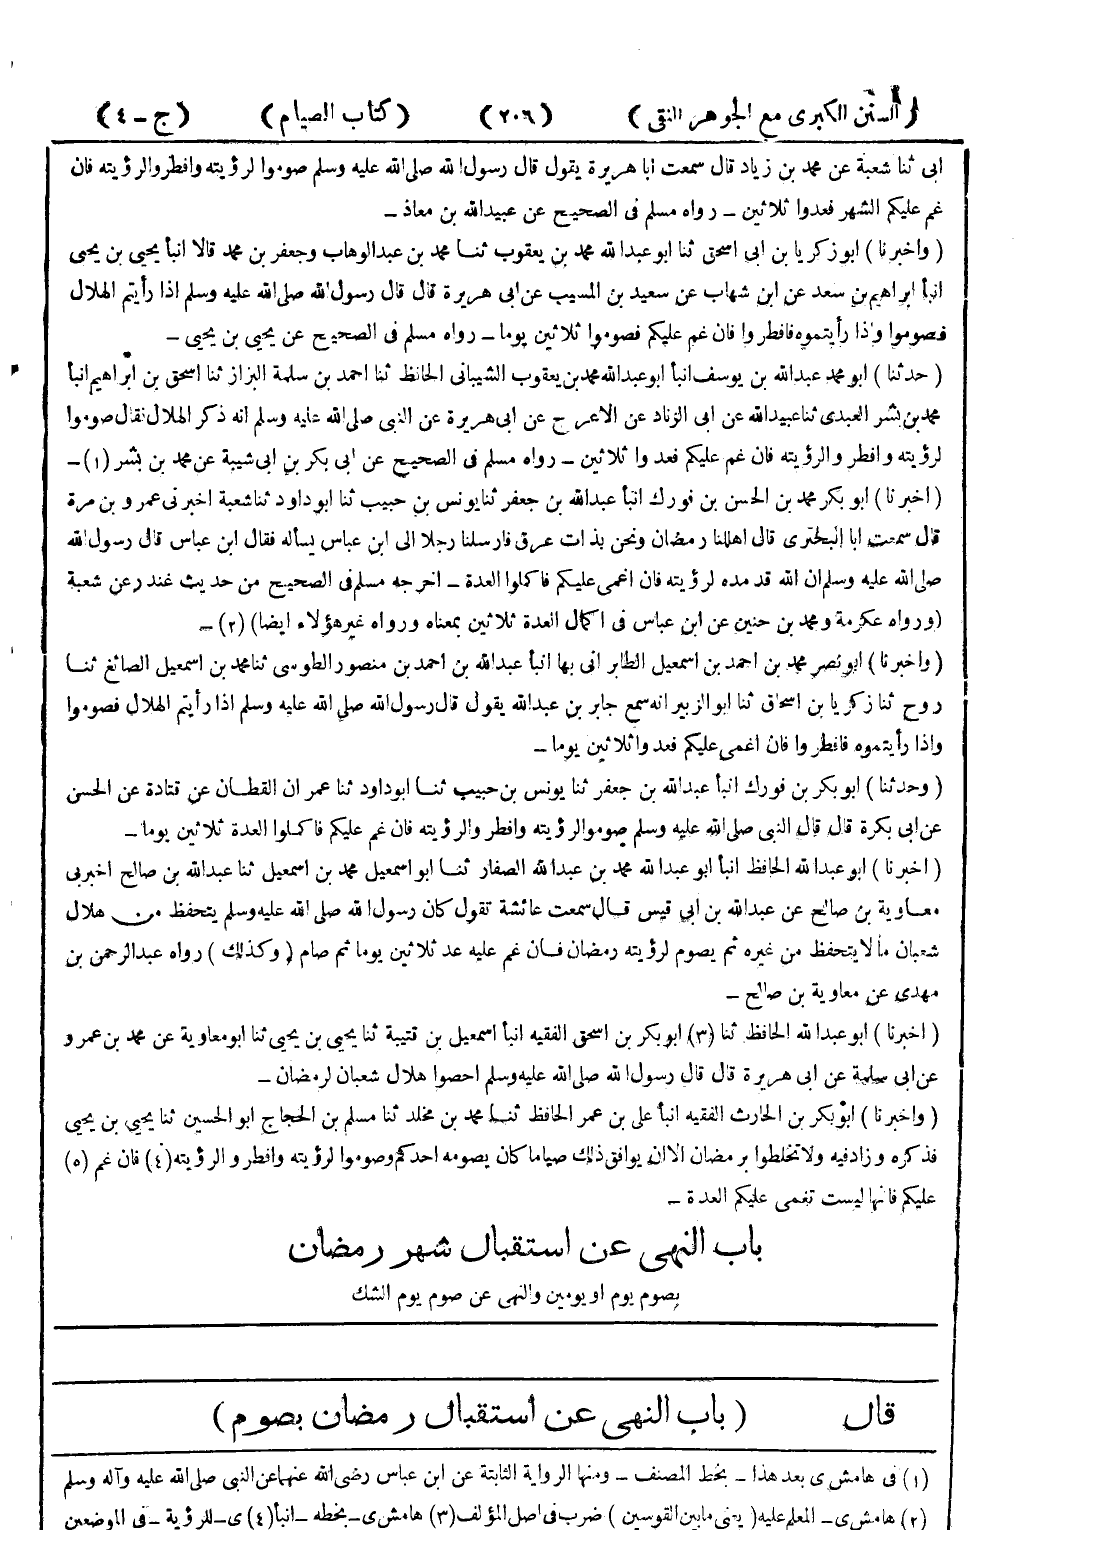 ( السنن الكبرى مع الجوهر النقى ) (٢٠٦) ( كتاب الصيام ) ( ج ـ ٤ )
ابى ثنا شعبة عن محمد بن زياد قال سمعت ابا هريرة يقول قال رسول الله صلى الله عليه وسلم صوموا لرؤيته وافطروا لرؤيته فان
غم عليكم الشهر فعدوا ثلاثين ـ رواه مسلم فى الصحيح عن عبيدالله بن معاذ ـ
( واخبرنا ) ابو زكريا بن ابى اسحق ثنا ابو عبدالله محمد بن يعقوب ثنا محمد بن عبدالوهاب وجعفر بن محمد قالا انبأ يحيى بن يحيى
انبأ ابراهيم بن سعد عن ابن شهاب عن سعيد بن المسيب عن ابى هريرة قال قال رسول الله صلى الله عليه وسلم اذا رأيتم الهلال
فصوموا واذا رأيتموه فافطروا فان غم عليكم فصوموا ثلاثين يوما ـ رواه مسلم فى الصحيح عن يحيى بن يحيى ـ
( حدثنا ) ابو محمد عبدالله بن يوسف انبأ ابو عبدالله محمد بن يعقوب الشيبانى الحافظ ثنا احمد بن سلمة البزاز ثنا اسحق بن ابراهيم انبأ
محمد بن بشر العبدى ثنا عبيدالله عن ابى الزناد عن الاعرج عن ابى هريرة عن النبى صلى الله عليه وسلم انه ذكر الهلال فقال صوموا
لرؤيته وافطروا لرؤيته فان غم عليكم فعدوا ثلاثين ـ رواه مسلم فى الصحيح عن ابى بكر بن ابى شيبة عن محمد بن بشر (١) ـ
( اخبرنا ) ابو بكر محمد بن الحسن بن فورك انبأ عبدالله بن جعفر ثنا يونس بن حبيب ثنا ابو داود ثنا شعبة اخبرنى عمرو بن مرة
قال سمعت ابا البخترى قال اهللنا رمضان ونحن بذات عرق فارسلنا رجلا الى ابن عباس يسأله فقال ابن عباس قال رسول الله
صلى الله عليه وسلم ان الله قد مده لرؤيته فان اغمى عليكم فاكملوا العدة ـ اخرجه مسلم فى الصحيح من حديث غندر عن شعبة
(ورواه عكرمة ومحمد بن حنين عن ابن عباس فى اكمال العدة ثلاثين بمعناه ورواه غير هؤلاء ايضا) (٢) ـ
( واخبرنا ) ابو نصر محمد بن احمد بن اسمعيل الطابرانى بها انبأ عبدالله بن احمد بن منصور الطوسى ثنا محمد بن اسمعيل الصائغ ثنا
روح ثنا زكريا بن اسحاق ثنا ابو الزبير انه سمع جابر بن عبدالله يقول قال رسول الله صلى الله عليه وسلم اذا رأيتم الهلال فصوموا
واذا رأيتموه فافطروا فان اغمى عليكم فعدوا ثلاثين يوما ـ
( وحدثنا ) ابو بكر بن فورك انبأ عبدالله بن جعفر ثنا يونس بن حبيب ثنا ابو داود ثنا عمران القطان عن قتادة عن الحسن
عن ابى بكرة قال قال النبى صلى الله عليه وسلم صوموا لرؤيته وافطروا لرؤيته فان غم عليكم فاكملوا العدة ثلاثين يوما ـ
( اخبرنا ) ابو عبدالله الحافظ انبأ ابو عبدالله محمد بن عبدالله الصفار ثنا ابو اسمعيل محمد بن اسمعيل ثنا عبدالله بن صالح اخبرنى
معاوية بن صالح عن عبدالله بن أبي قيس قال سمعت عائشة تقول كان رسول الله صلى الله عليه وسلم يتحفظ من هلال
شعبان مالا يتحفظ من غيره ثم يصوم لرؤيته رمضان فان غم عليه عد ثلاثين يوما ثم صام ( وكذلك ) رواه عبدالرحمن بن
مهدى عن معاوية بن صالح ـ
( اخبرنا ) ابو عبدالله الحافظ ثنا (٣) ابو بكر بن اسحق الفقيه انبأ اسمعيل بن قتيبة ثنا يحيى بن يحيى ثنا ابو معاوية عن محمد بن عمرو
عن ابى سلمة عن ابى هريرة قال قال رسول الله صلى الله عليه وسلم احصوا هلال شعبان لرمضان ـ
( واخبرنا ) ابو بكر بن الحارث الفقيه انبأ على بن عمر الحافظ ثنا محمد بن مخلد ثنا مسلم بن الحجاج ابو الحسين ثنا يحيى بن يحيى
فذكره وزاد فيه ولا تخلطوا برمضان الا ان يوافق ذلك صياما كان يصومه احدكم وصوموا لرؤيته وافطروا لرؤيته (٤) فان غم (٥)
عليكم فانها ليست تغمى عليكم العدة ـ
باب النهى عن استقبال شهر رمضان
بصوم يوم او يومين والنهى عن صوم يوم الشك
قال ( باب النهى عن استقبال رمضان بصوم )
(١) فى هامش ى بعد هذا ـ بخط المصنف ـ ومنها الرواية الثابتة عن ابن عباس رضى الله عنهما عن النبى صلى الله عليه وآله وسلم
(٢) هامش ى ـ المعلم عليه ( يعنى مابين القوسين ) ضرب فى اصل المؤلف (٣) هامش ى ـ بخطه ـ انبأ (٤) ى ـ للرؤية ـ فى الموضعين